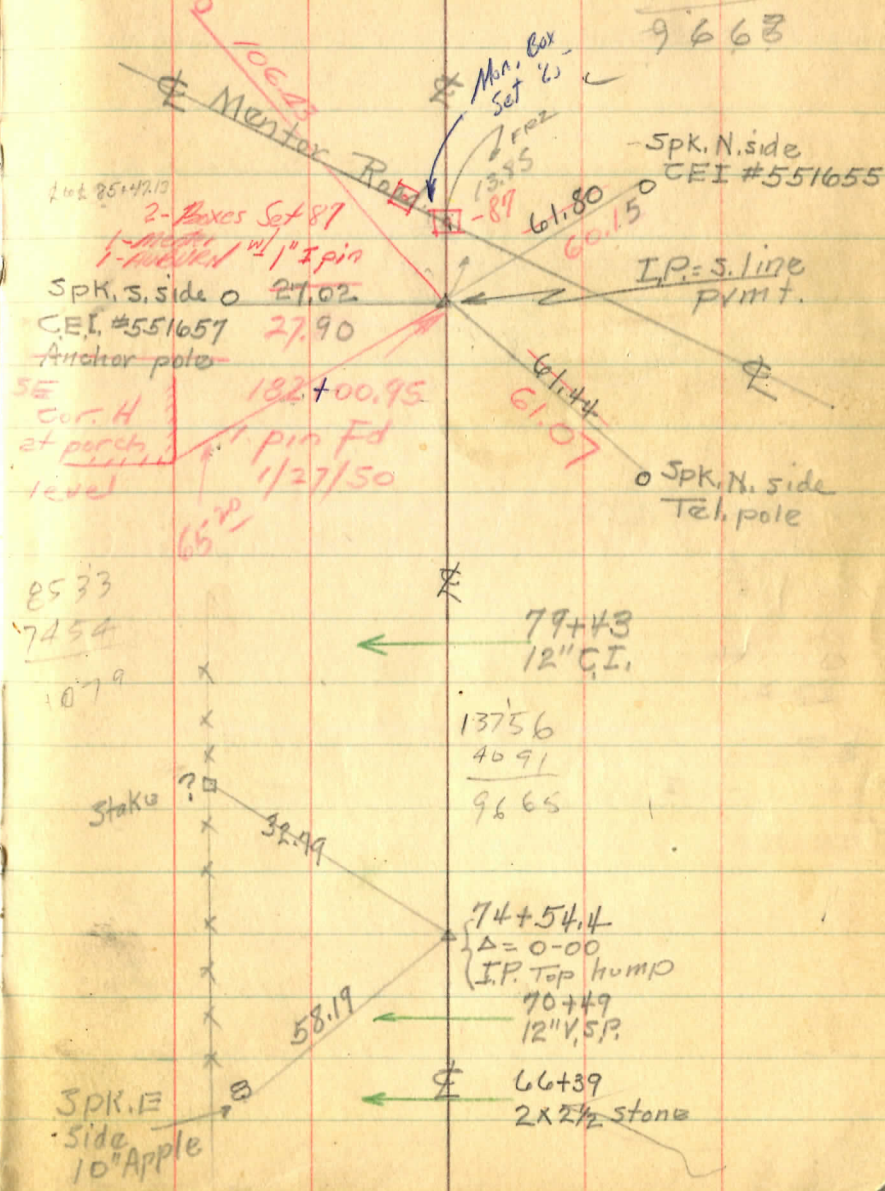 9 6 6 8
106.43
Mon. Box
Set '65
℄
℄ Mentor Road
13.85
- 87
Spk. N. side
CEI #551655
61.80
60.15
2 - Boxes Set 87
1 - Mentor
1 - AUBURN w/ 1" I pin
I.P. = S. line
pvmt.
Spk. S. side
27.02
C.E.I. #551657
27.90
Anchor pole
℄
61.44
61.07
SE
Cor. H
at porch
level
182+00.95
1" pin Fd
1/27/50
65.20
Spk. N. side
Tel. pole
℄
8533
7454
1079
79+43
12" C.I.
13756
4091
9665
Stake ?
32.79
74+54.4
Δ = 0-00
I.P. Top hump
70+49
12" V.S.P.
58.19
℄
66+39
2 x 2½ stone
Spk. E
Side
10" Apple